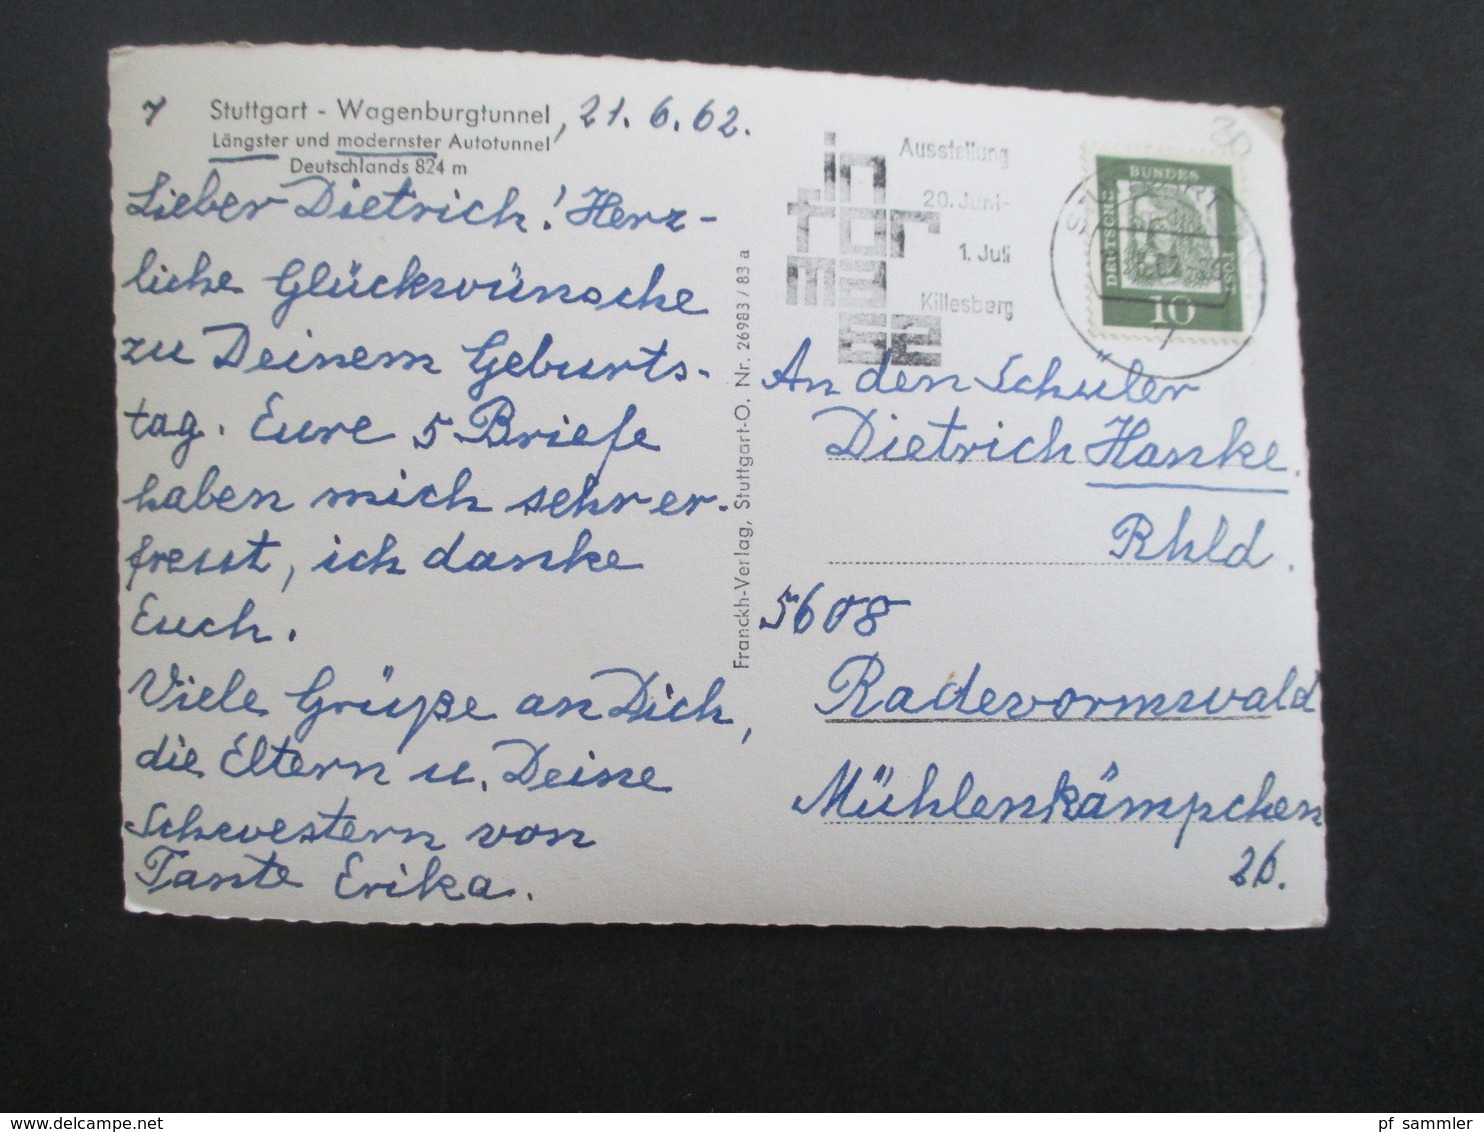 Stuttgart - Wagenburgtunnel, 21.6.62.
Längster und modernster Autotunnel
Deutschlands 824 m
Lieber Dietrich! Herz-
liche Glückwünsche
zu Deinem Geburts-
tag. Eure 5 Briefe
haben mich sehr er-
freut, ich danke
Euch.
Viele Grüße an Dich,
die Eltern u. Deine
Schwestern von
Tante Erika.
Franckh-Verlag, Stuttgart-O. Nr. 26983/83 a
in
tor
ma
ge
Ausstellung
20. Juni-
1. Juli
Killesberg
30
DEUTSCHE
BUNDES
POST
10
An den Schüler
Dietrich Hanke.
Rhld.
5608
Radevormwald
Mühlenkämpchen
26.
pf_sammler